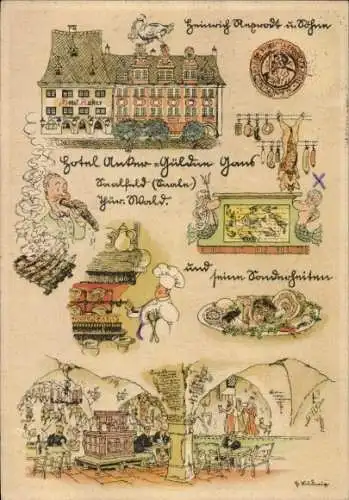 Heinrich Rexrodt u. Söhne
Hotel Anker
Hotel Anker-Güldne Gans
Saalfeld (Saale)
Thür. Wald.
und
seine Sonderheiten